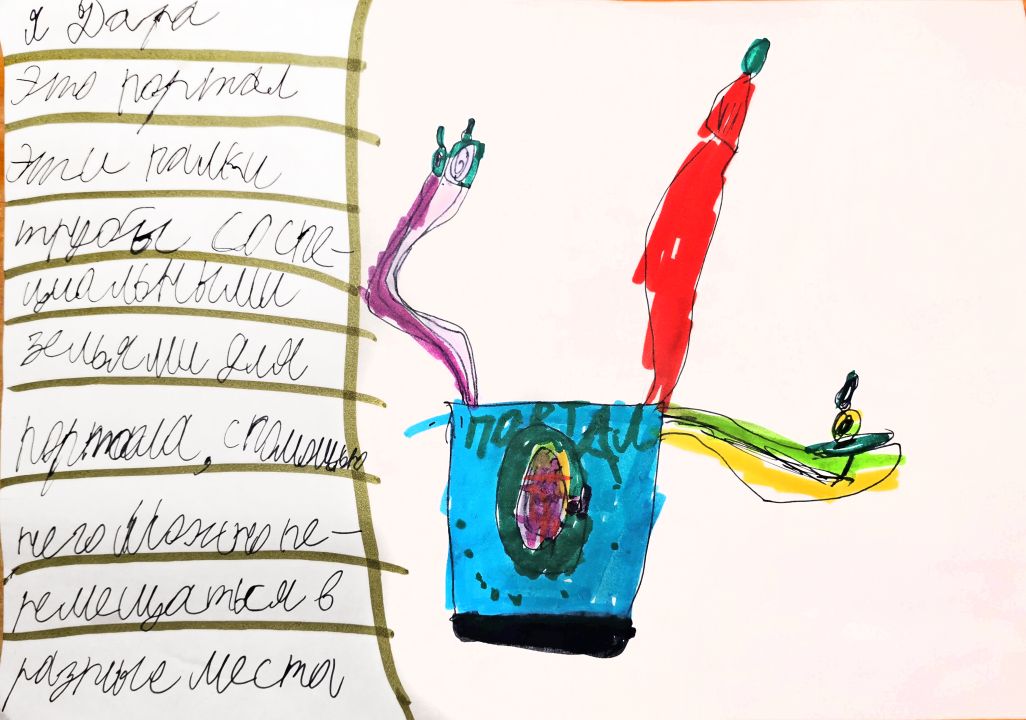 я Дара
Это портал
Эти палки
трубы со спе-
циальными
зельями для
портала, с помощью
него можно пе-
ремещаться в
разные места
ПОРТАЛ